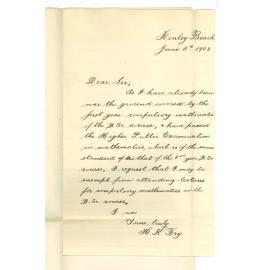 Henley Beach,
June 6th 1908
Dear Sir,
As I have already been
over the ground covered by the
first year compulsory mathematics
of the B.Sc course, & have passed
the Higher Public Examination
in mathematics, which is of the same
standard as that of the 1st year B.Sc
course, I request that I may be
exempt from attending lectures
for compulsory mathematics in the
B.Sc course.
I am
Yours truly
H. K. Fry